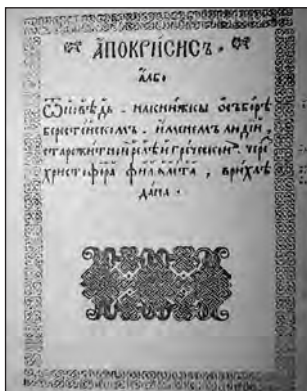 АПОКРИСИСЪ .
албо
Ѿповѣдь . на книжкы ѡ съборѣ
берестейскомъ . именемъ людій ,
старожитной релѣи греческой . через
христофора филялета , врихлѣ
дана .